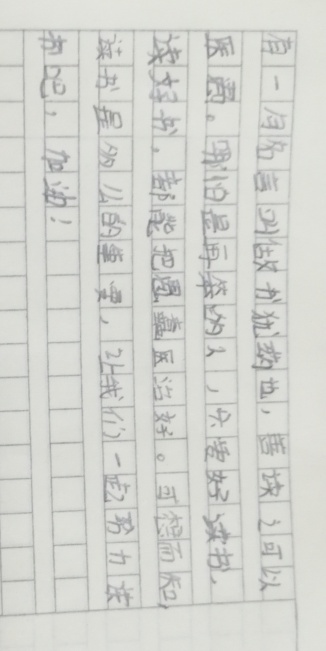 有一句名言叫做书犹药也，善读之可以
医愚。哪怕是再笨的人，只要好读书，
读好书，都能把愚蠢医治好。可想而知，
读书是多么的重要，让我们一起努力读
书吧，加油！